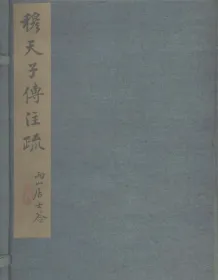 穆天子傳注疏